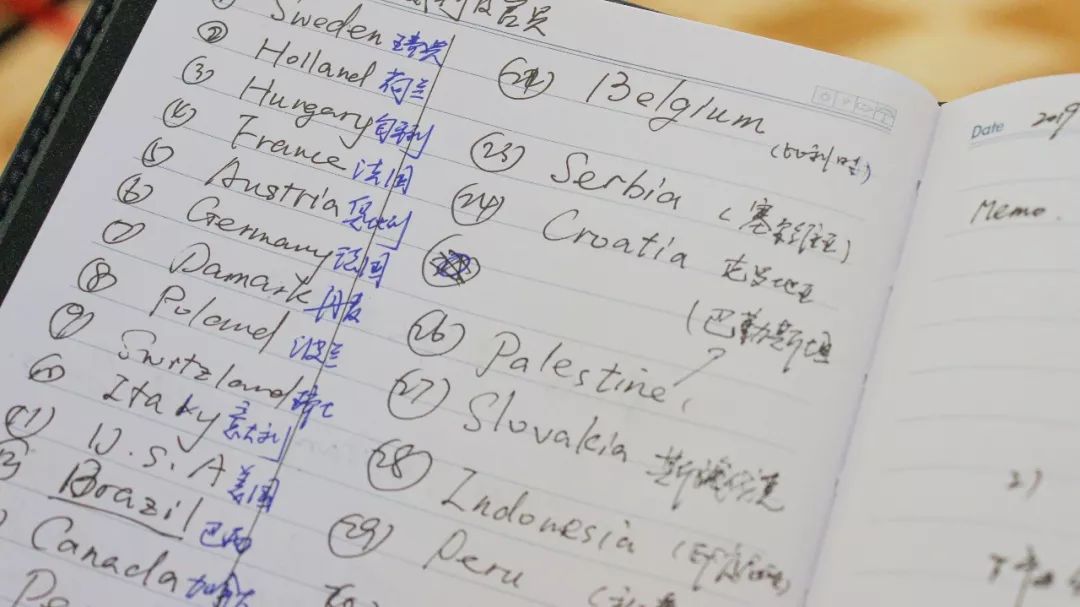 ① Sweden 瑞典
② Holland 荷兰
③ Hungary 匈牙利
④ France 法国
⑤ Austria 奥地利
⑥ Germany 德国
⑦ Damark 丹麦
⑧ Poland 波兰
⑨ Switzland 瑞士
⑩ Itaky 意大利
⑪ U.S.A 美国
Brazil 巴西
Canada 加拿大
Belgium
(比利时)
㉓ Serbia (塞尔维亚)
㉔ Croatia 克罗地亚
(巴勒斯坦
㉖ Palestine
㉗ Slovakia 斯洛伐克
㉘ Indonesia
㉙ Peru
Date 2019
Memo.
2)